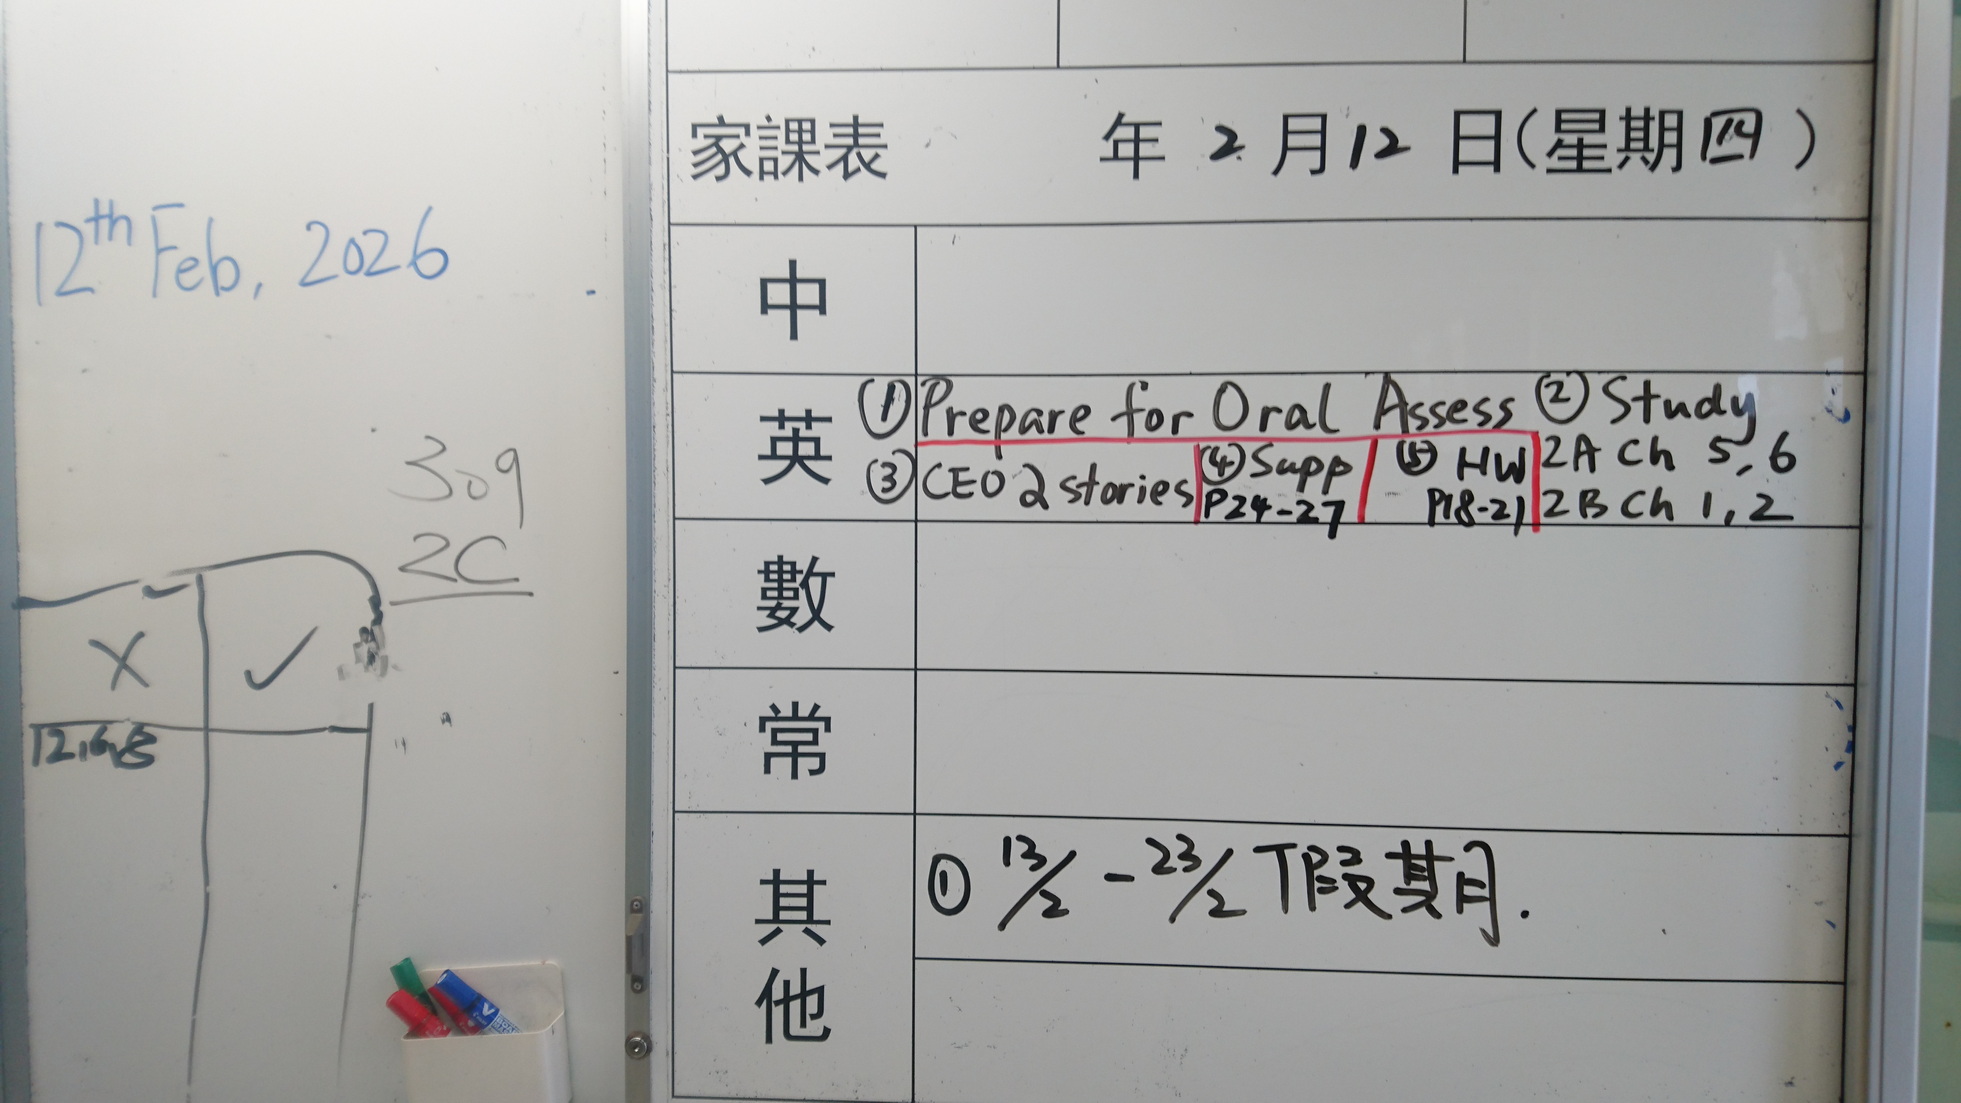 12th Feb, 2026
309
2C
X ✓
家課表 年 2 月 12 日(星期四)
中
英
① Prepare for Oral Assess ② Study
2A Ch 5, 6
2B Ch 1, 2
③ CEO 2 stories
④ Supp
P24-27
⑤ HW
P18-21
數
常
其他
① 13/2 - 23/2 假期.